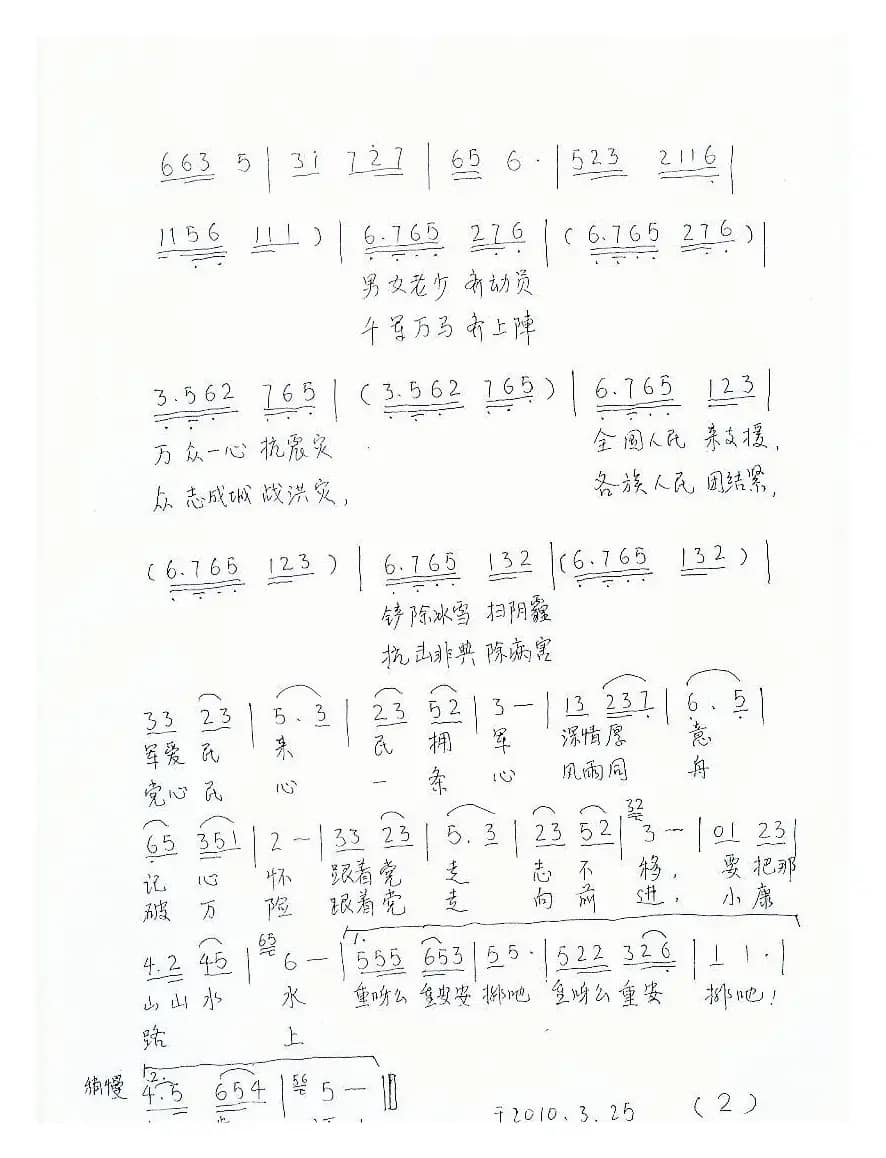 663 5 | 3i 7 2̇ 7 | 65 6 · | 523 2116 |
1156 111 ) | 6.765 276 | ( 6.765 276 ) |
男女老少 齐动员
千军万马 齐上陣
3.562 765 | ( 3.562 765 ) | 6.765 123 |
万众一心 抗震灾 全国人民 来支援,
众志成城 战洪灾, 各族人民 团结紧,
( 6.765 123 ) | 6.765 132 | ( 6.765 132 ) |
铲除冰雪 扫阴霾
抗击非典 除病害
33 23 | 5.3 | 23 52 | 3 — | 13 237 | 6.5 |
军爱民 来 民 拥 军 深情厚 意
党心民 心 一 条 心 风雨同 舟
65 351 | 2 — | 33 23 | 5.3 | 23 52 | 32 3 — | 01 23 |
记 心 怀 跟着党 走 志 不 移, 要把那
破 万 险 跟着党 走 向 前 进, 小康
4.2 45 | 65 6 — | 1. 555 653 | 55 · | 522 326 | 1 1 · |
山山水 水 重呀么 重安安 排吧 重呀么 重安 排吧!
路 上
稍慢 2. 4.5 654 | 56 5 — ‖
于2010.3.25 (2)